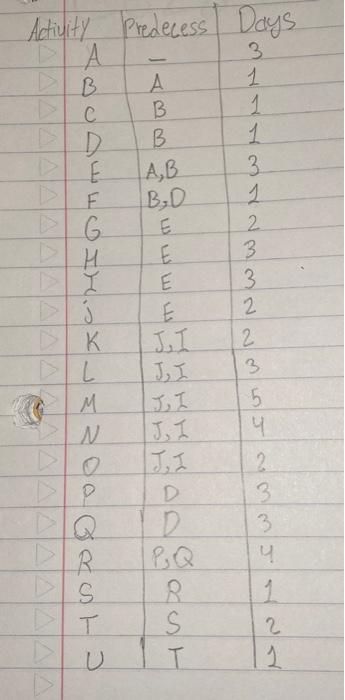 Activity Predecess Days
A — 3
B A 1
C B 1
D B 1
E A,B 3
F B,D 1
G E 2
H E 3
I E 3
j E 2
K J,I 2
L J,I 3
M J,I 5
N J,I 4
O J,I 2
P D 3
Q D 3
R P,Q 4
S R 1
T S 2
U T 1